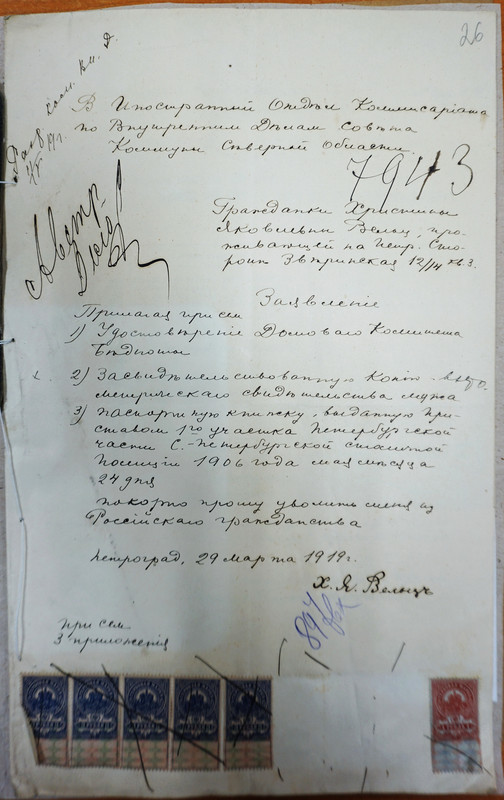 26
В Иностранный Отдѣл Коммисаріата
по Внутренним Дѣлам совѣта
Коммуны Сѣверной Области.
7943
Гражданки Христины
Яковлевны Вельц, про-
живающей на Петр. Сто-
ронѣ Звѣринская 12/14 кв. 3.
Заявленіе
Прилагая при сем
1) Удостовѣреніе Домоваго Комитета
Бѣдноты
2) Засвидѣтельствованную Копію
метрическаго свидѣтельства мужа
3) паспортную книжку, выданную при-
ставом 1го участка Петербургской
части С.-Петербургской столичной
Полиціи 1906 года мая мѣсяца
24 дня
покорно прошу уволить меня из
Россійскаго гражданства
Петроград, 29 марта 1919 г.
Х. Я. Вельцъ
при сем
3 приложенія